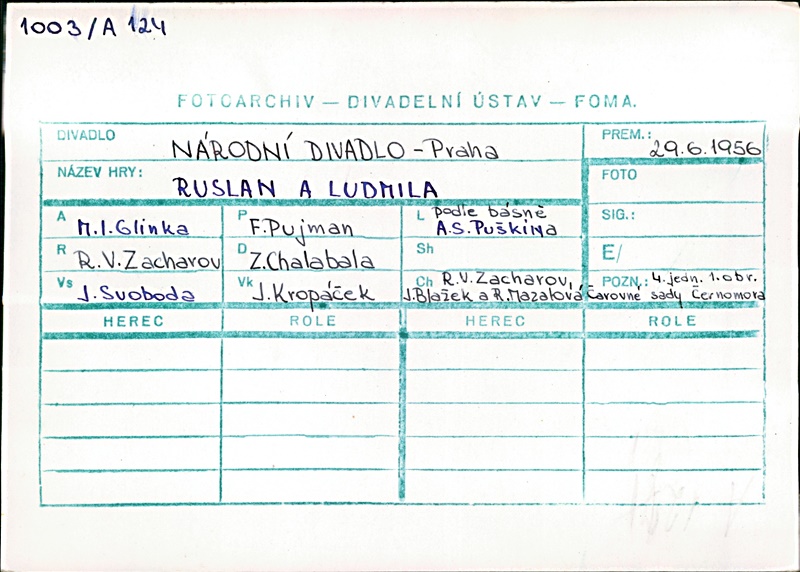 1003/A 124
FOTOARCHIV — DIVADELNÍ ÚSTAV — FOMA.
DIVADLO NÁRODNÍ DIVADLO - Praha
PREM.: 29.6.1956
NÁZEV HRY: RUSLAN A LUDMILA
FOTO
A M.I.Glinka
P F.Pujman
L podle básně
A.S.PUŠKINA
SIG.:
R R.V.Zacharov
D Z.Chalabala
Sh
E/
Vs J.Svoboda
Vk J.Kropáček
Ch R.V.Zacharov,
J.Blažek a R.Mazalová
POZN.: 4.jedn. 1.obr.
Čarovné sady Černomora
HEREC ROLE HEREC ROLE